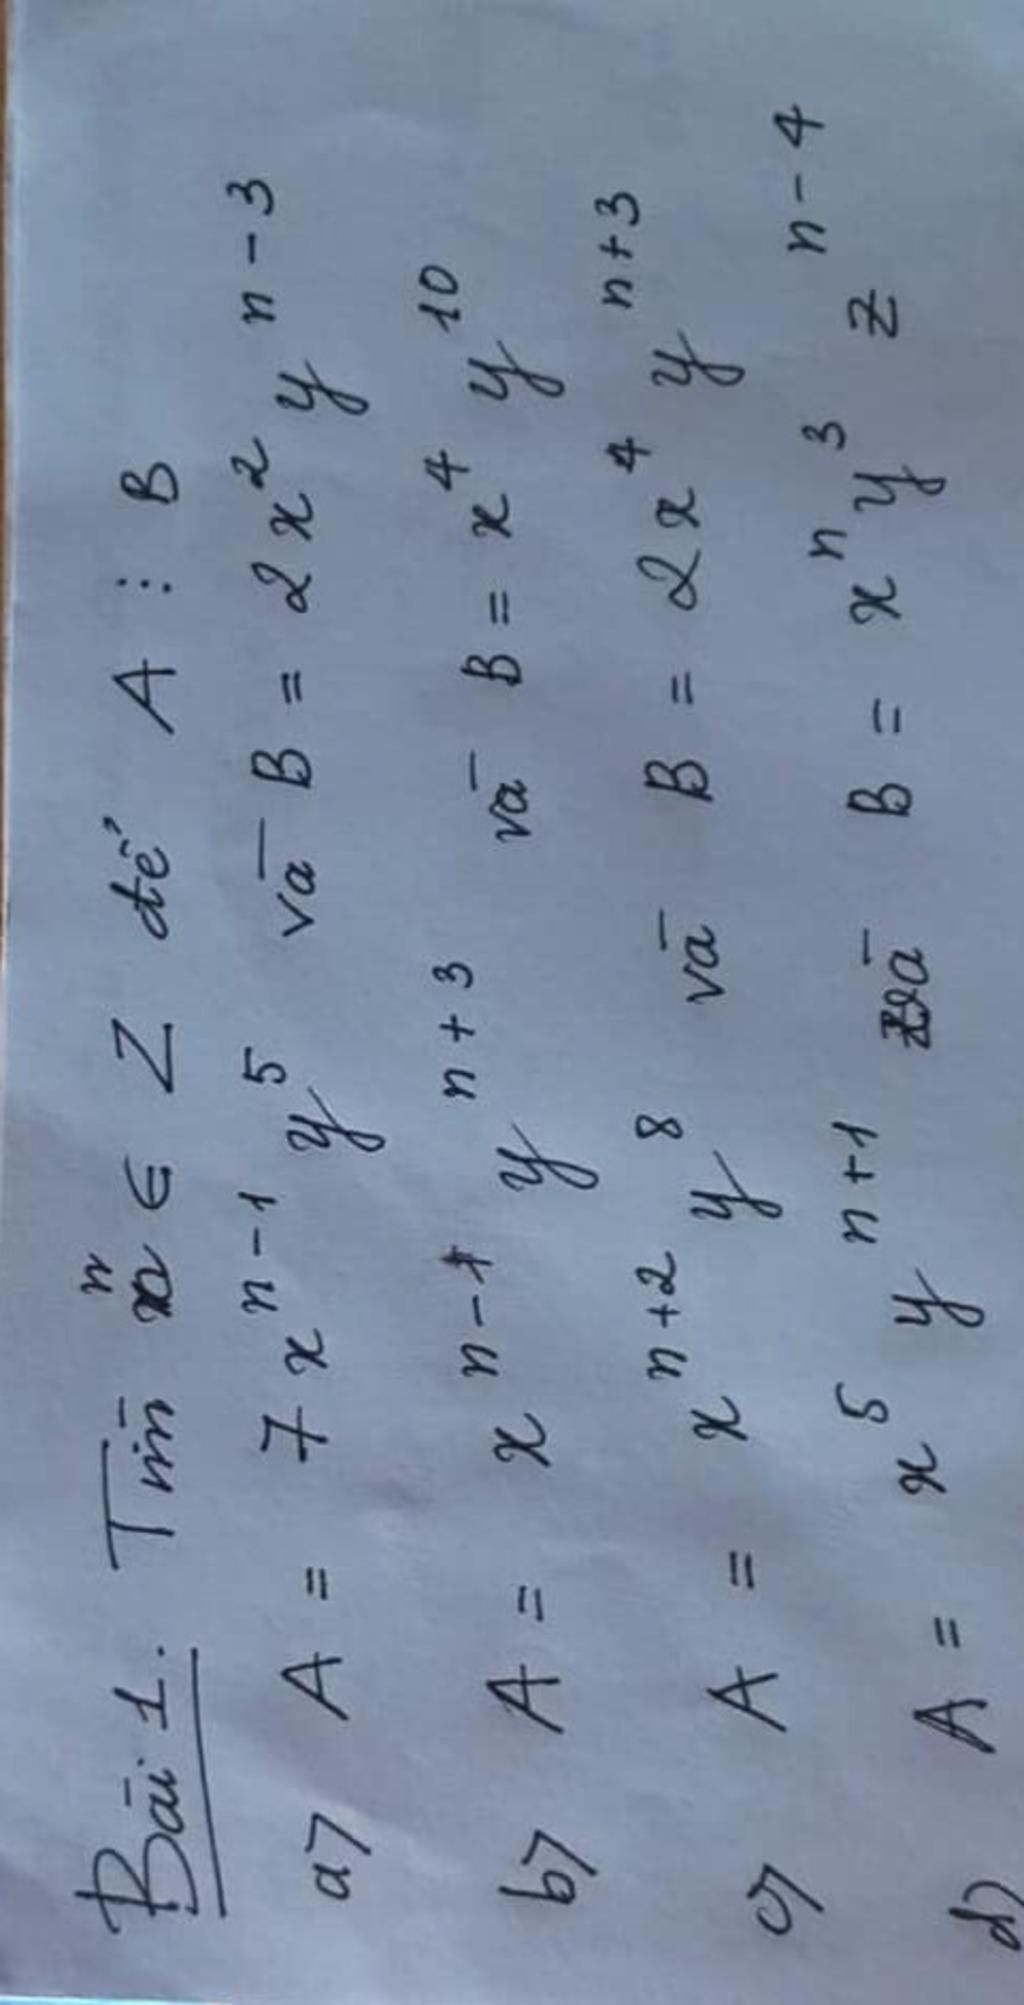 Bài 1. Tìm n ∈ Z để A ⋮ B
a) A = 7x^{n-1} y^5 và B = 2x^2 y^{n-3}
b) A = x^{n-1} y^{n+3} và B = x^4 y^{10}
c) A = x^{n+2} y^8 và B = 2x^4 y^{n+3}
d) A = x^5 y^{n+1} và B = x^n y^3 z^{n-4}